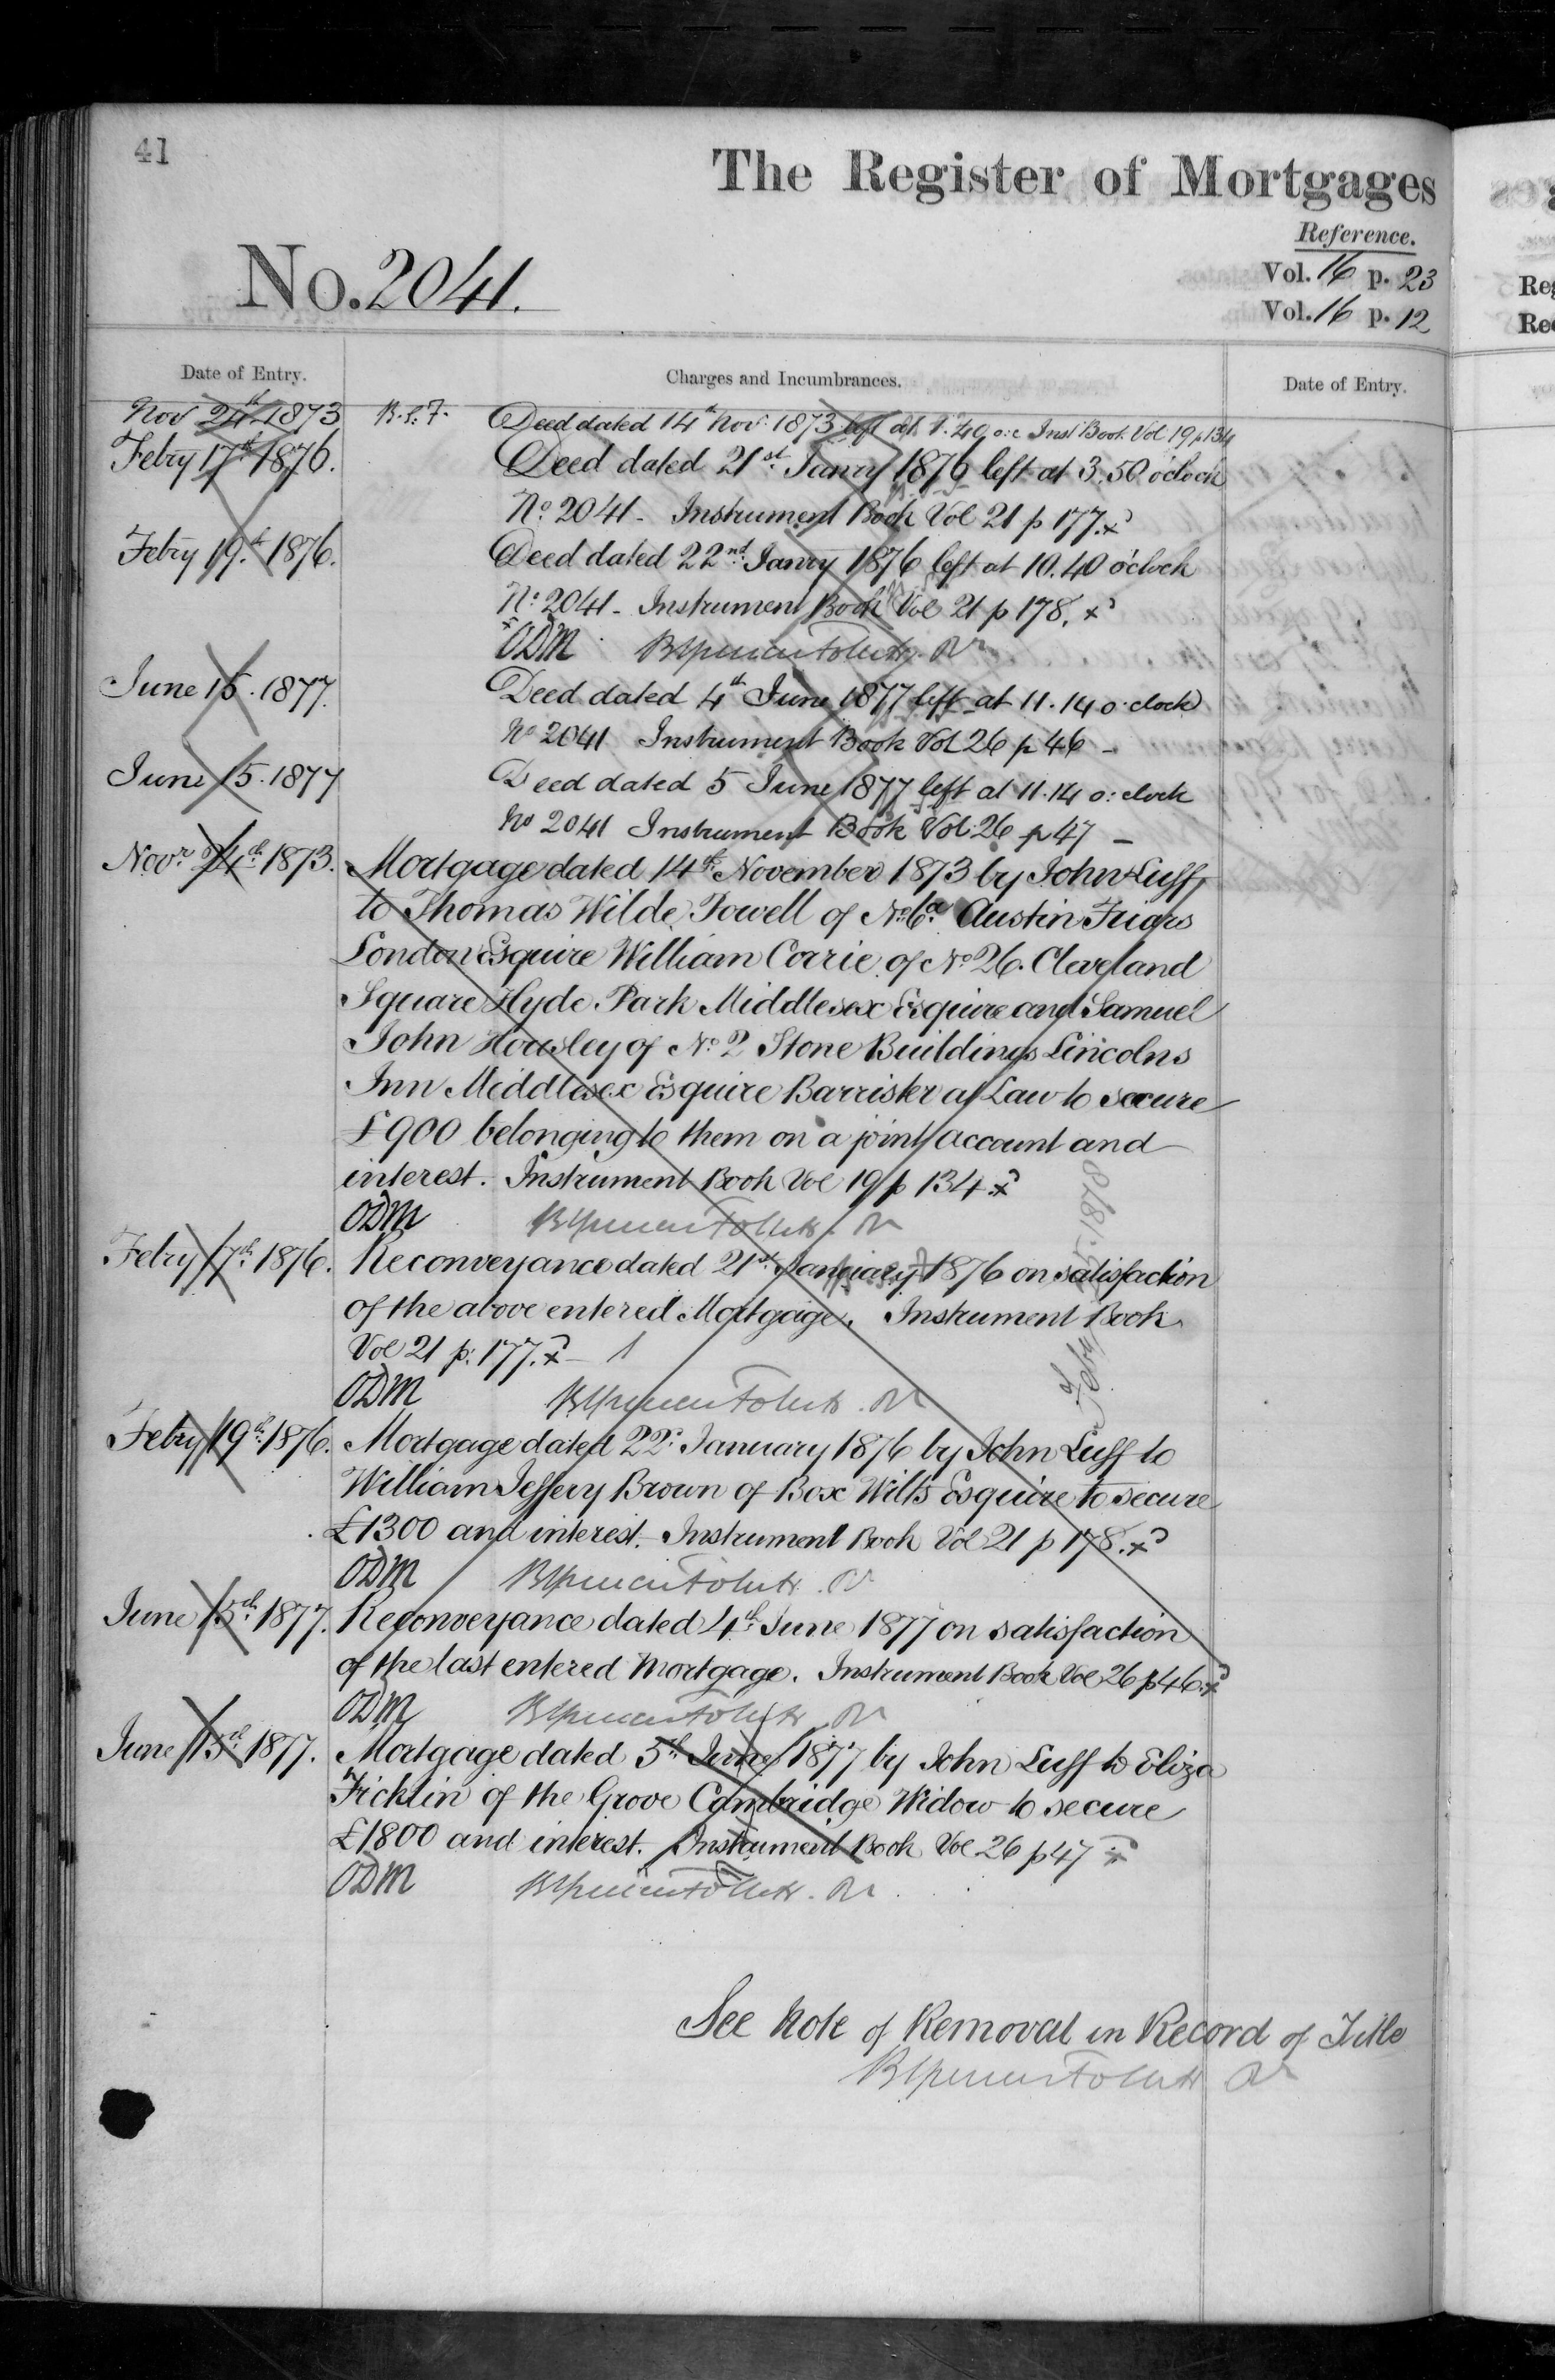 41
The Register of Mortgages
Reference.
No. 2041.
Vol. 16 p. 23
Vol. 16 p. 12
Date of Entry.
Charges and Incumbrances.
Date of Entry.
Nov 24th 1873 Deed dated 14th Nov. 1873 left at 1.40 o:c Inst Book Vol 19 p134
Febry 17th 1876. Deed dated 21st Janry 1876 left at 3.50 o'clock
No. 2041 - Instrument Book Vol 21 p 177.
Febry 19th 1876. Deed dated 22nd Janry 1876 left at 10.40 o'clock
No. 2041 - Instrument Book Vol 21 p 178.
ODM
June 15. 1877. Deed dated 4th June 1877 left at 11.14 o'clock
No 2041 Instrument Book Vol 26 p 46 -
June 15. 1877 Deed dated 5 June 1877 left at 11.14 o: clock
No 2041 Instrument Book Vol. 26 p 47 -
Novr 24th 1873. Mortgage dated 14th November 1873 by John Luff
to Thomas Wilde Powell of No. 6a Austin Friars
London Esquire William Corrie of No. 26. Cleveland
Square Hyde Park Middlesex Esquire and Samuel
John Housley of No. 2 Stone Buildings Lincolns
Inn Middlesex Esquire Barrister at Law to secure
£900 belonging to them on a joint account and
interest. Instrument Book Vol 19 p 134
ODM
Febry 17th 1876. Reconveyance dated 21st January 1876 on satisfaction
of the above entered Mortgage. Instrument Book
Vol 21 p: 177.
ODM
Febry 19th 1876. Mortgage dated 22d January 1876 by John Luff to
William Jeffery Brown of Box Wilts Esquire to secure
£1300 and interest. Instrument Book Vol 21 p 178.
ODM
June 15th 1877. Reconveyance dated 4th June 1877 on satisfaction
of the last entered Mortgage. Instrument Book Vol 26 p 46.
ODM
June 15th 1877. Mortgage dated 5th June 1877 by John Luff to Eliza
Ficklin of the Grove Cambridge Widow to secure
£1800 and interest. Instrument Book Vol 26 p 47
ODM
See Note of Removal in Record of Title